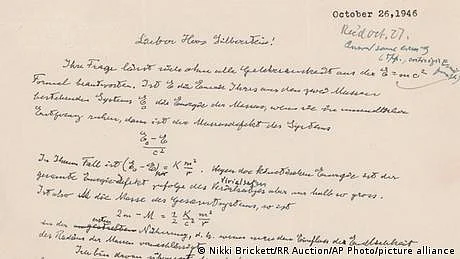 October 26, 1946
Lieber Herr Silberstein!
Ihre Frage lässt sich ohne alle Gelehrsamkeit aus der E = mc²
Formel beantworten. Ist E die Energie Ihres aus den zwei Massen
bestehenden Systems E₀ die Energie der Massen, wenn sie in unendlicher
Entfernung ruhen, dann ist der Massendefekt des Systems
E₀ - E
c²
In Ihrem Fall ist (E₀ - E) = K m²/r. Wegen der kinetischen Energie ist der
gesamte Energiedefekt infolge des Virialsatzes aber nur halb so gross.
Ist also M die Masse des Gesamtsystems, so ist
2m - M = 1/2 K/c² m²/r
in der ersten Näherung, d. h. wenn man den Einfluss der Endlichkeit
des Radius der Massen vernachlässigt
© Nikki Brickett/RR Auction/AP Photo/picture alliance